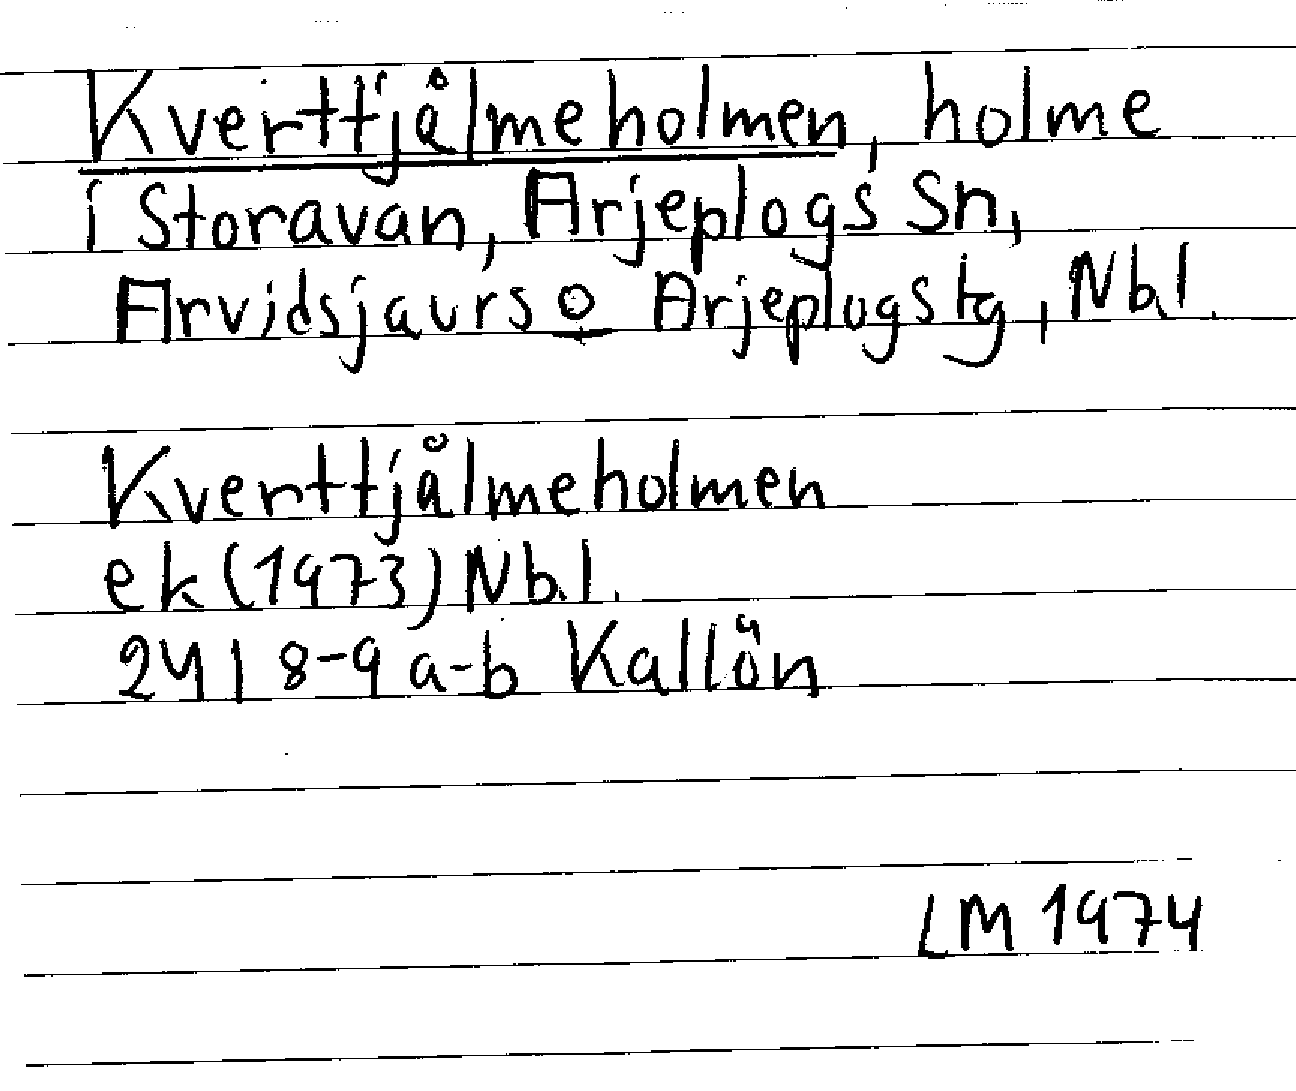 Kverttjålmeholmen, holme
i Storavan, Arjeplogs sn,
Arvidsjaurs o Arjeplogs tg, Nbl.
Kverttjålmeholmen
ek (1973) Nb.l.
24I 8-9 a-b Kallön
LM 1974